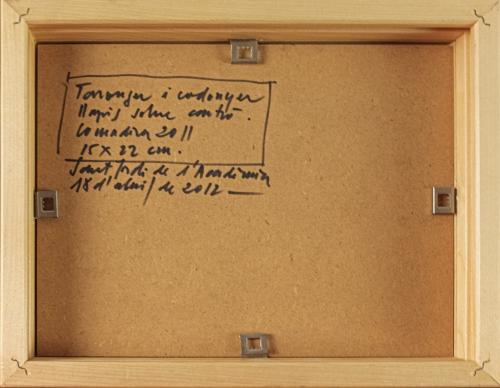 Taronger i codonyer
llapis sobre cartró.
Comadira 2011
15 x 22 cm.
Sant Jordi de l'Acadèmia
18 d'abril de 2012